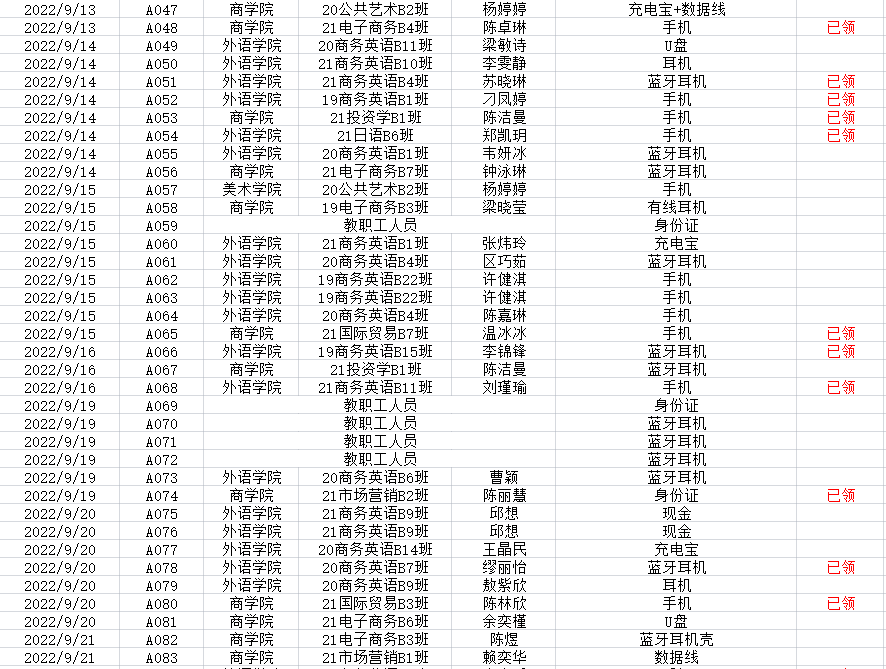 2022/9/13 A047 商学院 20公共艺术B2班 杨婷婷 充电宝+数据线
2022/9/13 A048 商学院 21电子商务B4班 陈卓琳 手机 已领
2022/9/14 A049 外语学院 20商务英语B11班 梁敏诗 U盘
2022/9/14 A050 外语学院 21商务英语B10班 李雯静 耳机
2022/9/14 A051 外语学院 21商务英语B4班 苏晓琳 蓝牙耳机 已领
2022/9/14 A052 外语学院 19商务英语B1班 刁凤婷 手机 已领
2022/9/14 A053 商学院 21投资学B1班 陈洁曼 手机 已领
2022/9/14 A054 外语学院 21日语B6班 郑凯玥 手机 已领
2022/9/14 A055 外语学院 20商务英语B1班 韦妍冰 蓝牙耳机
2022/9/14 A056 商学院 21电子商务B7班 钟泳琳 蓝牙耳机
2022/9/15 A057 美术学院 20公共艺术B2班 杨婷婷 手机
2022/9/15 A058 商学院 19电子商务B3班 梁晓莹 有线耳机
2022/9/15 A059 教职工人员 身份证
2022/9/15 A060 外语学院 21商务英语B1班 张炜玲 充电宝
2022/9/15 A061 外语学院 20商务英语B4班 区巧茹 蓝牙耳机
2022/9/15 A062 外语学院 19商务英语B22班 许健淇 手机
2022/9/15 A063 外语学院 19商务英语B22班 许健淇 手机
2022/9/15 A064 外语学院 20商务英语B4班 陈嘉琳 手机
2022/9/15 A065 商学院 21国际贸易B7班 温冰冰 手机 已领
2022/9/16 A066 外语学院 19商务英语B15班 李锦锋 蓝牙耳机 已领
2022/9/16 A067 商学院 21投资学B1班 陈洁曼 蓝牙耳机
2022/9/16 A068 外语学院 21商务英语B11班 刘瑾瑜 手机 已领
2022/9/19 A069 教职工人员 身份证
2022/9/19 A070 教职工人员 蓝牙耳机
2022/9/19 A071 教职工人员 蓝牙耳机
2022/9/19 A072 教职工人员 蓝牙耳机
2022/9/19 A073 外语学院 20商务英语B6班 曹颖 蓝牙耳机
2022/9/19 A074 商学院 21市场营销B2班 陈丽慧 身份证 已领
2022/9/20 A075 外语学院 21商务英语B9班 邱想 现金
2022/9/20 A076 外语学院 21商务英语B9班 邱想 现金
2022/9/20 A077 外语学院 20商务英语B14班 王晶民 充电宝
2022/9/20 A078 外语学院 20商务英语B7班 缪丽怡 蓝牙耳机 已领
2022/9/20 A079 外语学院 20商务英语B9班 敖紫欣 耳机
2022/9/20 A080 商学院 21国际贸易B3班 陈林欣 手机 已领
2022/9/20 A081 商学院 21电子商务B6班 余奕槿 U盘
2022/9/21 A082 商学院 21电子商务B3班 陈煜 蓝牙耳机壳
2022/9/21 A083 商学院 21市场营销B1班 赖奕华 数据线